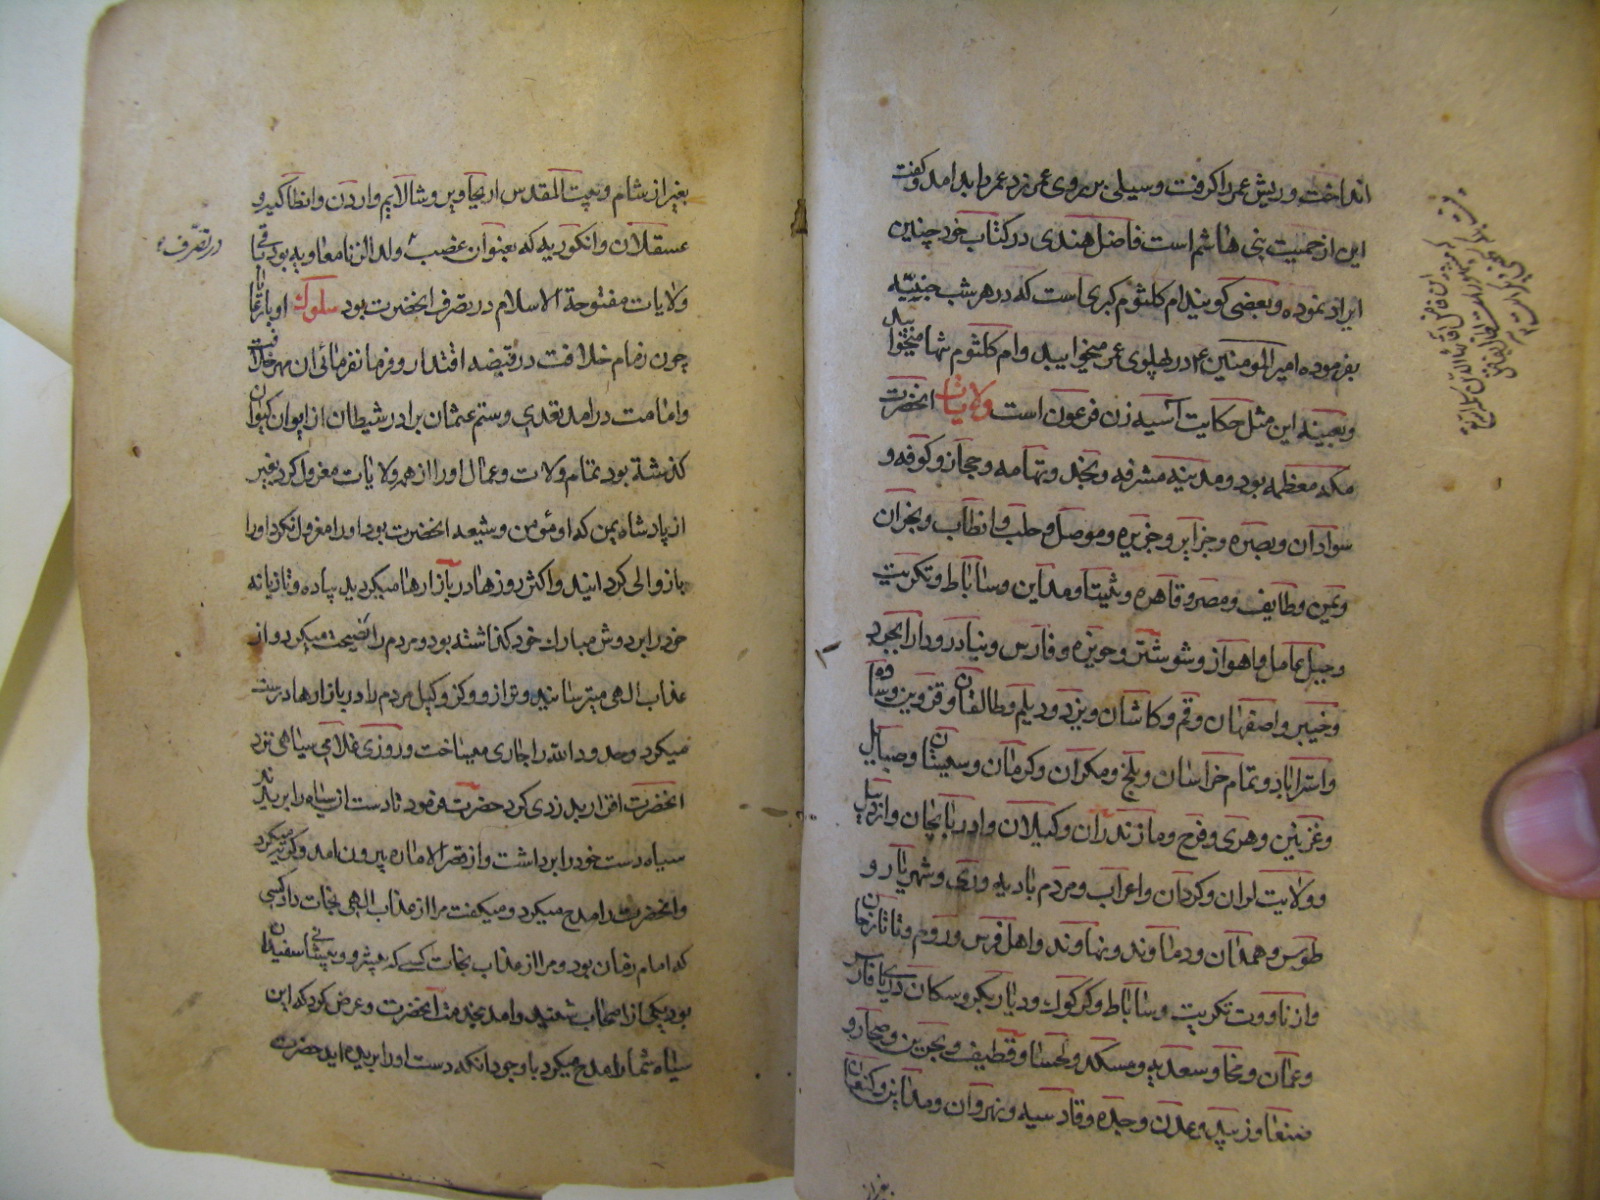 انداخت و ریش عمر را کرفت و سیلی بر روی عمر زد عمر را بد امد و کفت
این از حمیت بنی هاشم است فاضل هندی در کتاب خود چنین
ایراد نموده و بعضی کویند ام کلثوم کبری است که در هر شب جنیّه
بفرموده امیر المومنین ع در پهلوی عمر میخوابید و ام کلثوم تنها میخوابید
و بعینه این مثل حکایت آسیه زن فرعون است ولایات انحضرت
مکه معظمه بود و مدینه مشرفه و نجد و تهامه و حجاز و کوفه و
سوادان و بصره و جزایر و جزیره و موصل و حلب و انطاب و نجران
و یمن و طایف و مصر و قاهره و و مداین و ساباط و تکریت
و جبل عامل و اهواز و شوشتر و حویزه و فارس و بنادر و دارابجرد
و خیبر و اصفهان و قم و کاشان و یزد و دیلم و طالقان و قزوین و ساوه
و استراباد و تمام خراسان و بلخ و مکران و کرمان و سیستان و
و غزنین و هری و فرح و مازندران و کیلان و ادربایجان و اردبیل
و ولایت لران و کردان و اعراب و مردم بادیه وری و شهریار و
طوس و همدان و دماوند و نهاوند و اهل فرس و روم و تا
و ارناووت تکریت و ساباط و کرکوك و دیاربکر و سکان دریای فارس
و عمان و نخا و سعدیه و مسکد و لحسا و قطیف و بحرین و صحار و
صنعا و زبید و عدن و جده و قادسیه و نهروان و مداین و کنعان
بغیر از
بغیر از شام و بیت المقدس اریحا و شالایم و اردن و انطاکیه و
عسقلان و انکوریه که بعنوان غصب ولد الزنا معاویه بود باقی
در تصرف
ولایات مفتوحة الاسلام در تصرف انحضرت بود سلوك او با رعایا
چون زمام خلافت در قبضه اقتدار و فرمانفرمائی ان مهر خلافت
و امامت درامد تعدی و ستم عثمان برادر شیطان از ایوان کیوان
کذشته بود تمام ولات و عمال او را از همه ولایات معزول کرد بغیر
از پادشاه یمن که او مؤمن و شیعه انحضرت بود او را معزول نکرد او را
باز والی کردانید و اکثر روزها در بازارها میکردید پیاده و تازیانه
خود را بر دوش مبارك خود کذاشته بود و مردم را نصیحت میکرد و از
عذاب الهی میترسانید و ترازو و وکز و کیل مردم را در بازارها درست
میکرد و حدود الله را جاری میساخت و روزی غلامی سیاهی نزد
انحضرت اقرار بدزدی کرد حضرت فرمود تا دست از سیاه را بریدند
سیاه دست خود را برداشت و از قصر الاماره بیرون امد و کریه میکرد
و انحضرت را مدح میکرد و میکفت مرا از عذاب الهی نجات داد کسی
که امام زمان بود و مرا از عذاب نجات کسی که پیشرو و پیشانی سفیدان
بود یکی از اصحاب شنید و امد بخدمت انحضرت و عرض کرد که این
سیاه شما را مدح میکرد با وجود انکه دست او را بریده اید حضرت